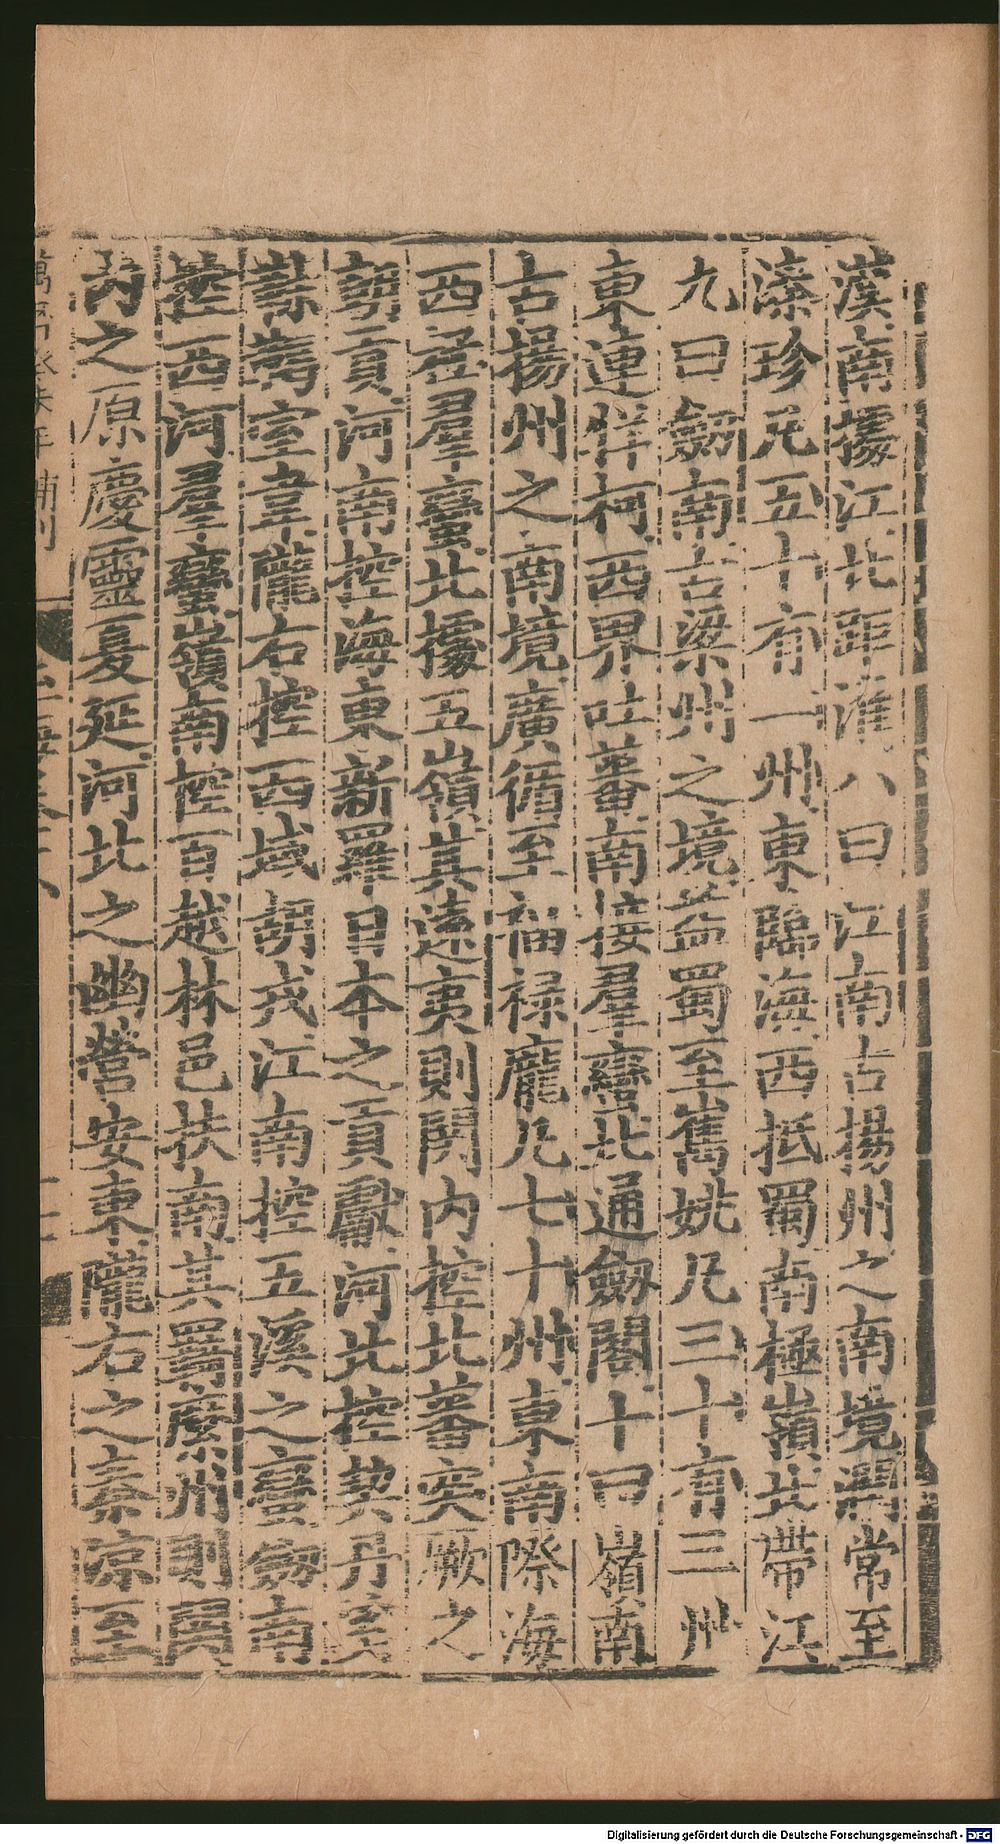 漢南據江北距淮八曰江南古揚州之南境潤常至
溱珍凡五十有一州東臨海西抵蜀南極嶺北帶江
九曰劒南古梁州之境益蜀至舊姚凡三十有三州
東連牂柯西界吐蕃南接羣蠻北通劒閣十曰嶺南
古揚州之南境廣循至福禄龐凡七十州東南際海
西極羣蠻北據五嶺其遠夷則関内控北蕃突厥之
朝貢河南控海東新羅日本之貢獻河北控契丹奚
靺鞨室韋隴右控西域胡戎江南控五溪之蠻劒南
控西河羣蠻嶺南控百越林邑扶南其羈縻州則関
内之原慶靈夏延河北之幽營安東隴右之秦凉至
Digitalisierung gefördert durch die Deutsche Forschungsgemeinschaft - DFG